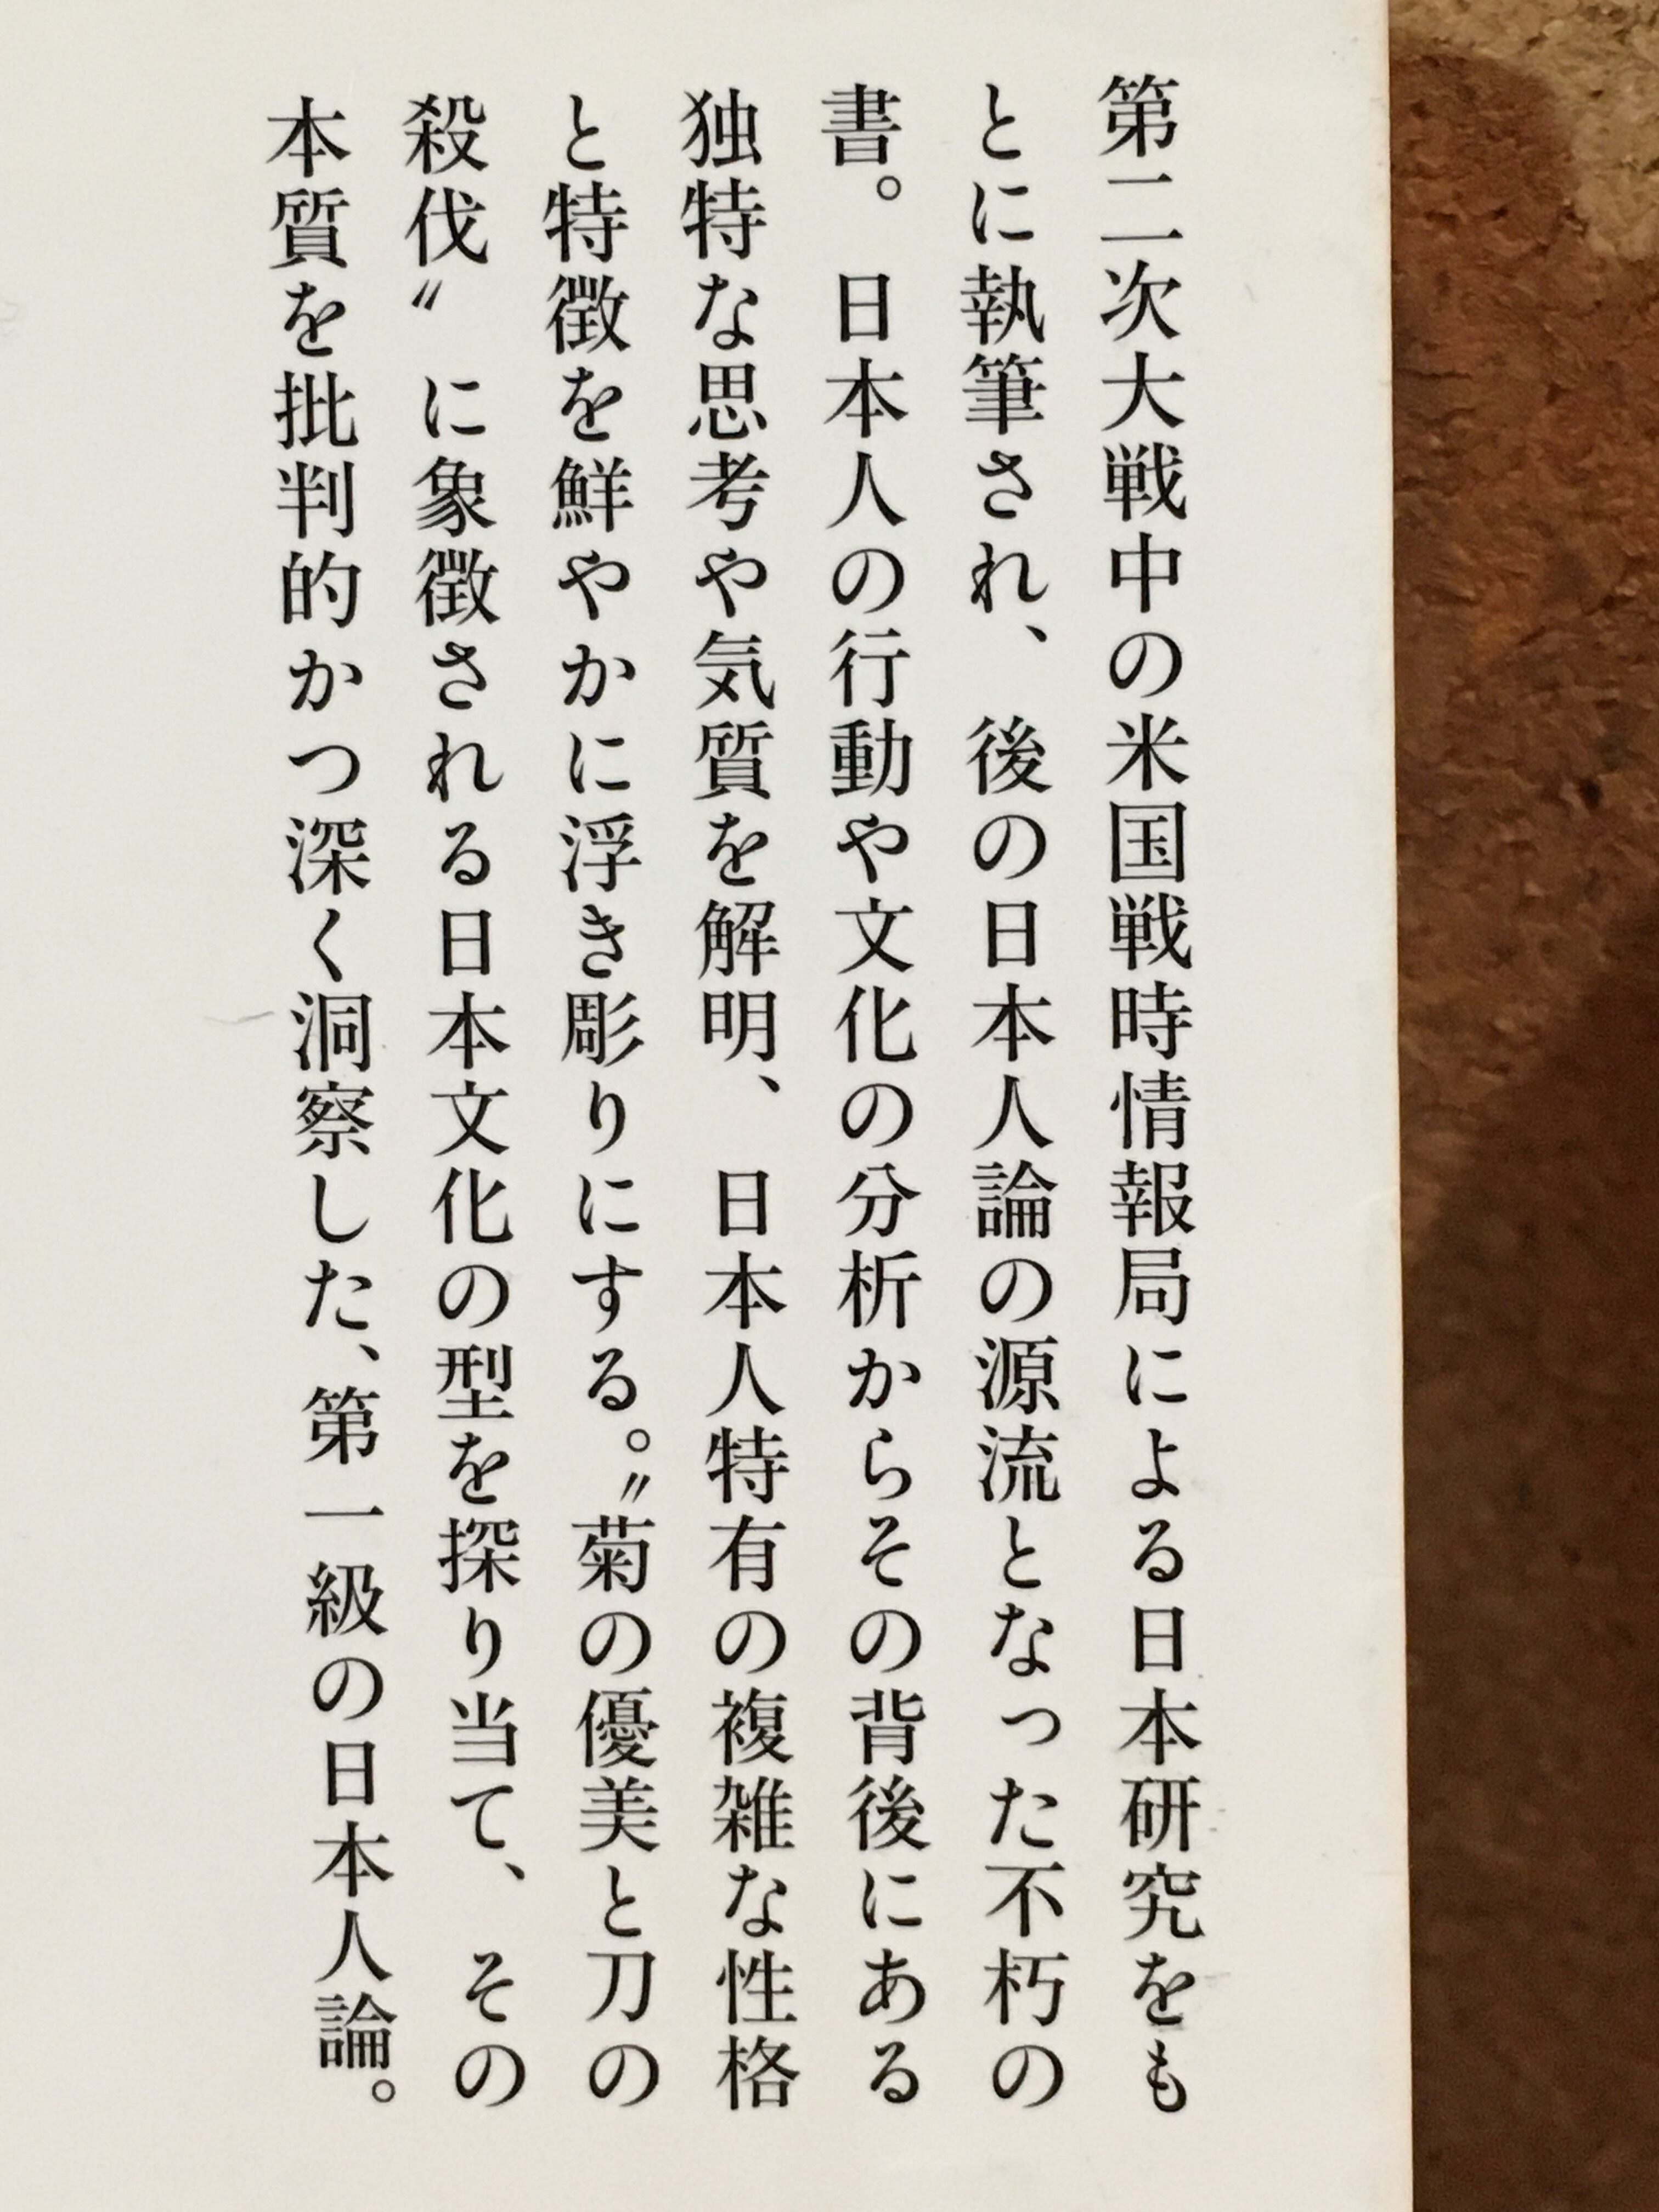 第二次大戦中の米国戦時情報局による日本研究をも
とに執筆され、後の日本人論の源流となった不朽の
書。日本人の行動や文化の分析からその背後にある
独特な思考や気質を解明、日本人特有の複雑な性格
と特徴を鮮やかに浮き彫りにする。〝菊の優美と刀の
殺伐〟に象徴される日本文化の型を探り当て、その
本質を批判的かつ深く洞察した、第一級の日本人論。